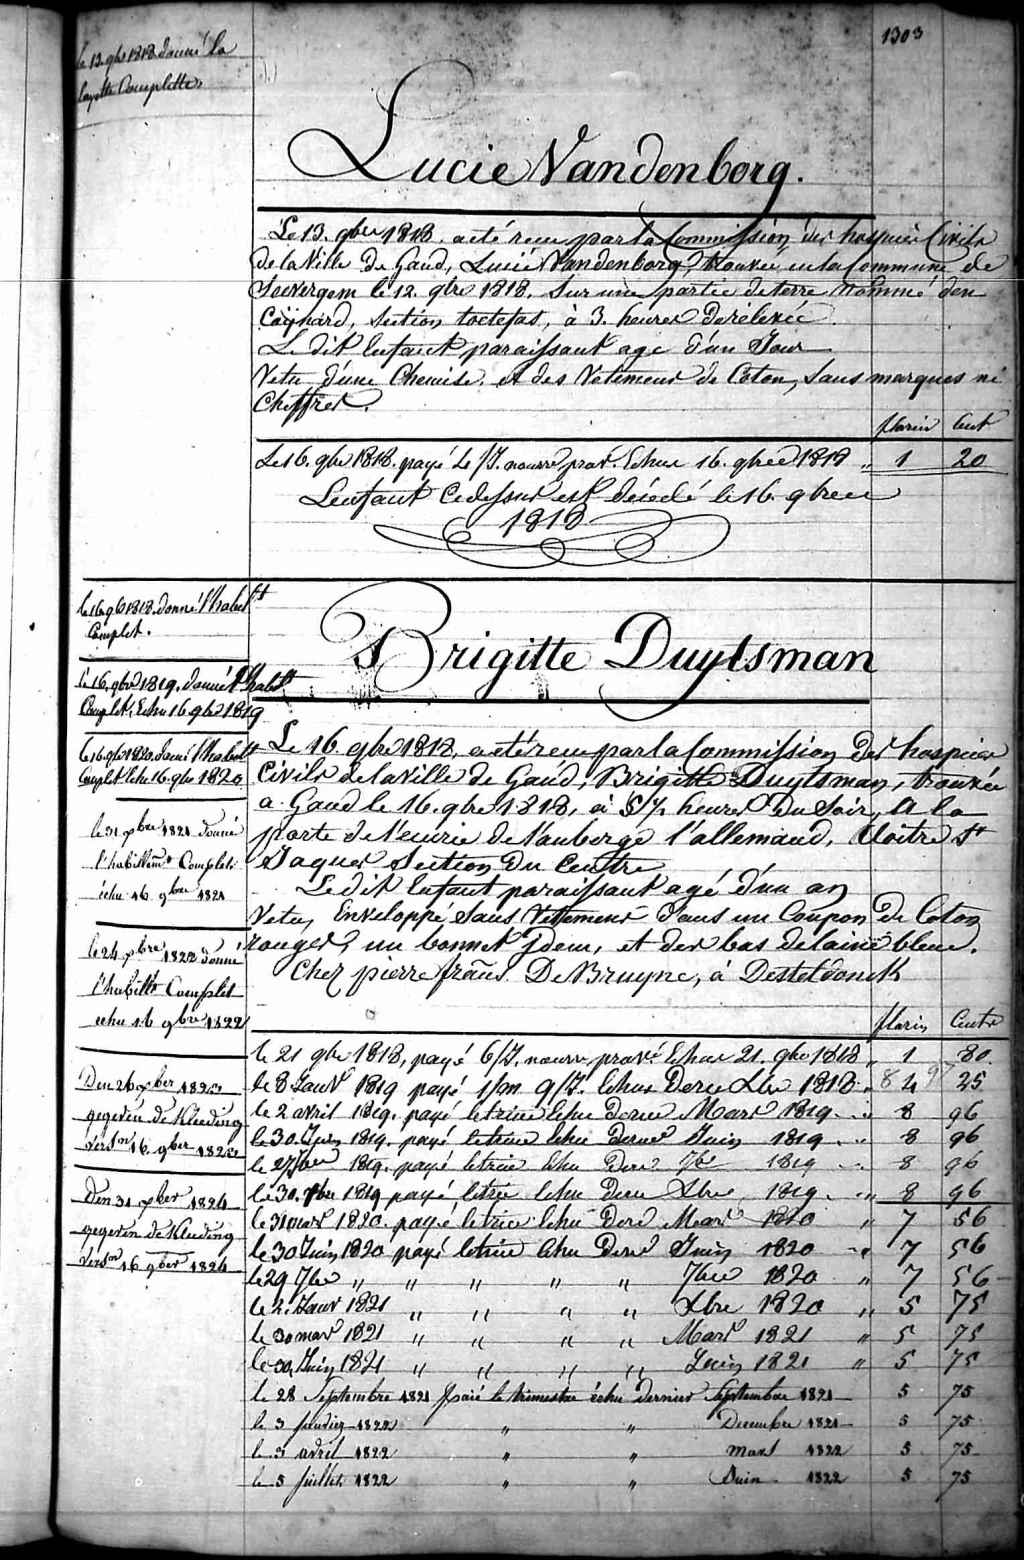 1303
le 13 gbre 1818 donné la
layette Complette
Lucie Vandenborg.
Le 13. gbre 1818. a été recu par la Commission des hospices Civils
de la Ville de Gand, Lucie Vandenborg, trouvée en la Commune de
le 12. gbre 1818. Sur une partie de terre Nommé den
Section à 3. heures
Le dit Enfant paraissant agé d'un Jour
Vetu d'une Chemise et des Vetemens de Coton, Sans marques ni
Chiffres.
florin Cent
Le 16. gbre 1818. payé Le Echue 16. gbre 1818 „ 1 20
L'enfant Cidessus est décédé le 16 gbre
1818
le 16 gb 1818. donné l'habillt
Complet.
Brigitte Duytsman
le 16. gbre 1819. donné l'habillt
Complet, Echu 16 gbre 1819
le 16 gbre 1820 donné l'habillt
Complet Echu 16. gbre 1820
le 31 gbre 1821 donné
l'habillemt Complet
échu 16 gbre 1821
le 24 gbre 1822 donné
l'habillt Complet
echu 16 gbre 1822
Den 26 gber 1823
gegeven de Kleeding
16 gber 1823
Den 31 gber 1824
gegeven de Kleeding
16 gber 1824
Le 16 gbre 1818, a été recu par la Commission des hospices
Civils de la Ville de Gand, Brigitte Duytsman, trouvée
a Gand le 16. gbre 1818, à 5 1/2 heures du Soir, a la
porte de l'ecurie de l'auberge l'allemand, Cloitre St
Jaques Section du Centre
Le dit Enfant paraissant agé d'un an
Vetu, Enveloppé Sans Vettement dans un Coupon de Coton
rouger, un bonnet idem, et des bas de laine bleue.
Chez pierre frans. DeBruyne, à Desteldonck
florin Cents
le 21 gbre 1818, payé 6/J. nourr. Echue 21. gbre 1818 „ 1 80
le 8 Janvr 1819 payé 1/m 9/J. Echue Xbre 1818 „ 4 25
le 2 avril 1819. payé letrim Echu Mars 1819 „ 8 96
le 30. Juin 1819. payé letrim Echu Juin 1819 „ 8 96
le 1819. payé letrim Echu 7bre 1819 „ 8 96
le 30. 1819 payé letrim Echu Xbre 1819. „ 8 96
le 31 mars 1820. payé letrim Echu Mars 1820 „ 7 56
le 30 Juin 1820 payé letrim Echu Juin 1820 „ 7 56
le 29 7bre „ „ „ „ „ 7bre 1820 „ 7 56
le 2. Janvr 1821 „ „ „ „ Xbre 1820 „ 5 75
le 30 mars 1821 „ „ „ „ Mars 1821 „ 5 75
le 30 Juin 1821 „ „ „ „ Juin 1821 „ 5 75
le 28 Septembre 1821 payé le trimestre échu dernier Septembre 1821 5 75
le 3 janvier 1822 „ „ Decembre 1821 5 75
le 3 avril 1822 „ „ mars 1822 5 75
le 5 juillet 1822 „ „ Juin 1822 5 75